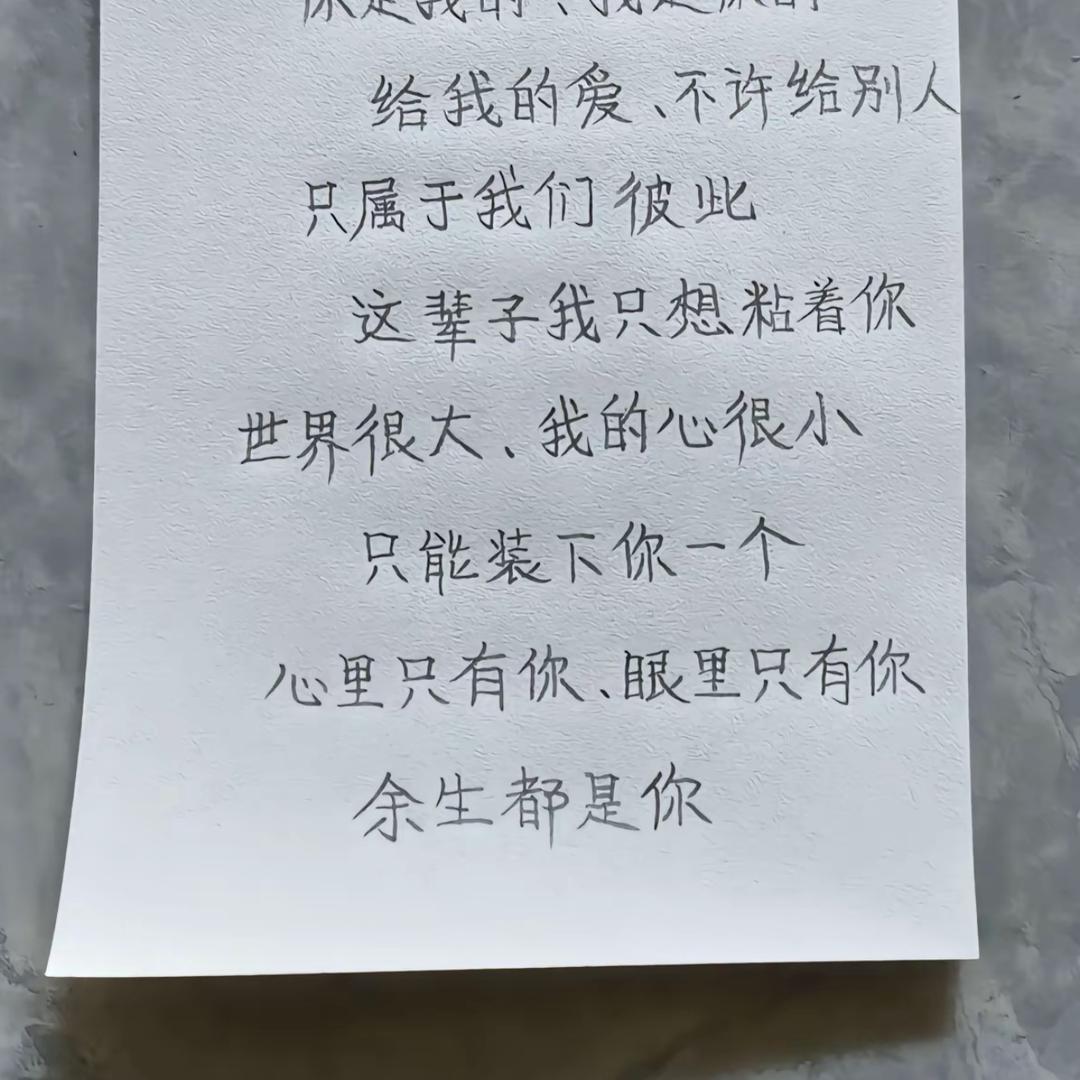 你是我的、我是你的
给我的爱、不许给别人
只属于我们彼此
这辈子我只想粘着你
世界很大、我的心很小
只能装下你一个
心里只有你、眼里只有你
余生都是你